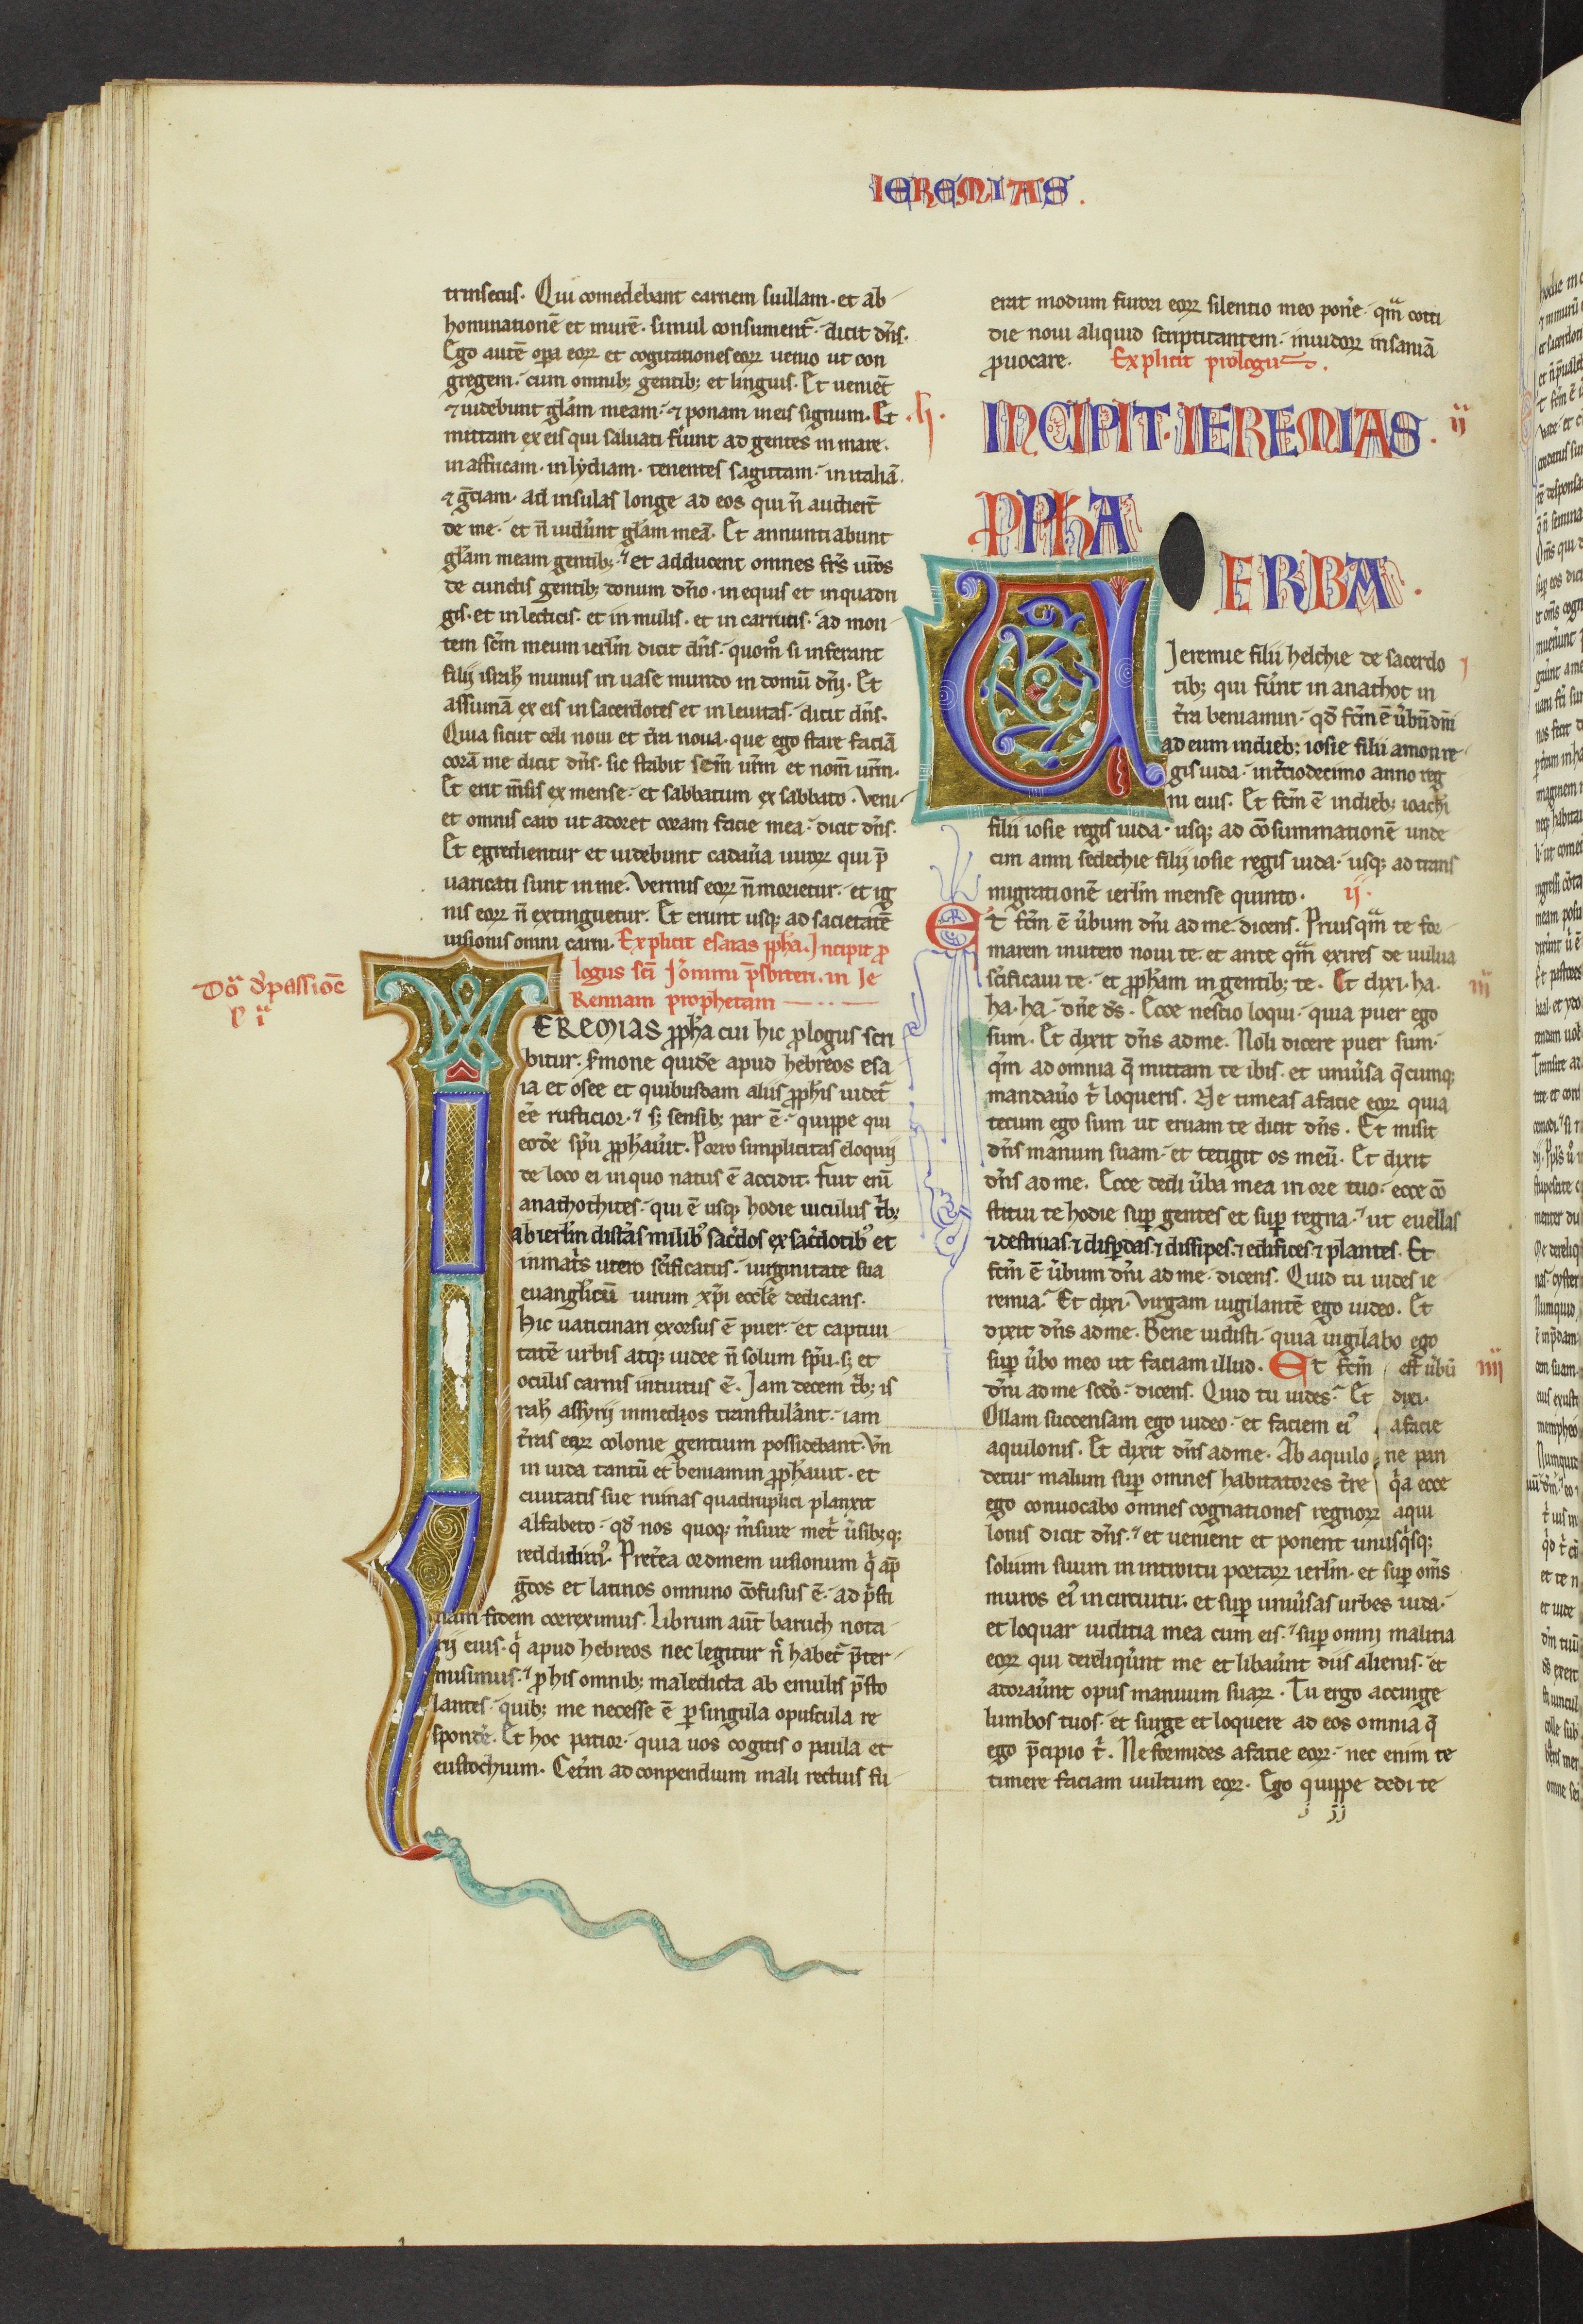 IEREMIAS.
trinsecus. Qui comedebant carnem suillam. et ab
hominationē et murē. simul consument᷑. dicit dn̄s.
Ego autē oꝑa eoꝝ et cogitationes eoꝝ uenio ut con
gregem. cum omnibꝫ gentibꝫ et linguis. Et ueniēt
⁊ uidebunt gl̄am meam. ⁊ ponam in eis signum. Et
mittam ex eis qui saluati fu̾int ad gentes in mare.
in affricam. in lydiam. tenentes sagittam. in italiā.
⁊ gͤciam. ad insulas longe ad eos qui n̄ audiert̄
de me. et n̄ uider̄unt gl̄am meā. Et annuntiabunt
gl̄am meam gentibꝫ. et adducent omnes fr̄s ur̄os
de cunctis gentibꝫ donum dn̄o. in equis et in quadri
gis. et in lecticis. et in mulis. et in carrucis. ad mon
tem sc̄m meum ierl̄m dicit dn̄s. quom̊ si inferant
filij isrl̄ munus in uase mundo in domū dn̄j. Et
assumā ex eis in sacerdotes et in leuitas. dicit dn̄s.
Quia sicut celi noui et t̾ra noua. que ego stare faciā
corā me dicit dn̄s. sic stabit sem̄ ur̄m et nom̄ ur̄m.
Et erit m̄sis ex mense. et sabbatum ex sabbato. Veni
et omnis caro ut adoret coram facie mea. dicit dn̄s.
Et egredientur et uidebunt cadau̾a uiroꝝ qui p̄
uaricati sunt in me. Vermis eoꝝ n̄ morietur. et ig
nis eoꝝ n̄ extinguetur. Et erunt usqꝫ ad sacietatē
uisionis omni carni. Explicit esaias ꝓph̄a. Incipit ꝓ
logus sc̄i Jeronimi p̄sbiteri. in Je
Remiam prophetam
EREMIAS ꝓph̄a cui hic ꝓlogus scri
bitur. s̾mone quidē apud hebreos esa
ia et osee et quibusdam aliis ꝓph̄is uidet᷑
eē rusticior. sꝫ sensibꝫ par ē. quippe qui
eodē sp̄u ꝓph̄au̾it. Porro simplicitas eloquij
de loco ei in quo natus ē accidit. Fuit enī
anathothites. qui ē usqꝫ hodie uiculus t̾bꝫ
ab ierl̄m distās milibꝰ sac̾dos ex sac̾dotibꝰ et
in mat̾s utero sc̄ificatus. uirginitate sua
euangl̄icū uirum xp̄i eccl̄e dedicans.
Hic uaticinari exorsus ē puer. et captiui
tatē urbis atqꝫ iudee n̄ solum sp̄u. sꝫ et
oculis carnis intuitus ē. Jam decem t̾bꝫ is
rah̄ assyrij in medꝫos transtul̾ant. iam
t̾ras eoꝝ colonie gentium possidebant. Vn̄
in iuda tantū et beniamin ꝓph̄auit. et
ciuitatis sue ruinas quadruplici planxit
alfabeto. qd̄ nos quoqꝫ m̄sure met̾ u̾sibꝫqꝫ
reddidimꝰ. Pret̾ea ordinem uisionum qͥ ap̄
gͤcos et latinos omnino cōfusus ē. ad pͥsti
nam fidem correximus. Librum aut̄ baruch nota
rij eius. qͥ apud hebreos nec legitur n̄ habet᷑ p̄ter
misimus. ꝓ his omnibꝫ maledicta ab emulis p̄sto
lantes. quibꝫ me necesse ē ꝑ singula opuscula re
spond̾e. Et hoc patior. quia uos cogitis o paula et
eustochium. Cet̾m ad conpendium mali rectius fu
erat modum furori eoꝝ silentio meo pon̾e. qm̄ cotti
die noui aliquid scriptitantem. inuidoꝝ insaniā
ꝓuocare. Explicit prologus.
INCIPIT. IEREMIAS. ij
PPHA
UERBA.
Jeremie filii helchie de sacerdo j
tibꝫ qui fu̾nt in anathot in
t̾ra beniamin. qd̄ fc̄m ē u̾bū dn̄i
ad eum in diebꝫ iosie filii amon re
gis iuda. in t̾ciodecimo anno reg
ni eius. Et fc̄m ē in diebꝫ ioachī
filii iosie regis iuda. usqꝫ ad cōsummationē unde
cim anni sedechie filij iosie regis iuda. usqꝫ ad trans
migrationē ierl̄m mense quinto. ij.
Et fc̄m ē u̾bum dn̄i ad me. dicens. Priusqm̄ te for
marem in utero noui te. et ante qm̄ exires de uulua
sc̄ificaui te. et ꝓph̄am in gentibꝫ te. Et dixi. ha. iij
ha. ha. dn̄e ds̄. Ecce nescio loqui. quia puer ego
sum. Et dixit dn̄s ad me. Noli dicere puer sum.
qm̄ ad omnia q̄ mittam te ibis. et uniu̾sa q̄cumqꝫ
mandau̾o t̾ loqueris. Ne timeas a facie eoꝝ quia
tecum ego sum ut eruam te dicit dn̄s. Et misit
dn̄s manum suam. et tetigit os meū. Et dixit
dn̄s ad me. Ecce dedi u̾ba mea in ore tuo. ecce cō
stitui te hodie suꝑ gentes et suꝑ regna. ut euellas
⁊ destruas. ⁊ disꝑdas. ⁊ dissipes. ⁊ edifices ⁊ plantes. Et
fc̄m ē u̾bum dn̄i ad me. dicens. Quid tu uides ie
remia. Et dixi. Virgam uigilantē ego uideo. Et
dixit dn̄s ad me. Bene uidisti. quia uigilabo ego
suꝑ u̾bo meo ut faciam illud. Et fc̄m est u̾bū iiij
dn̄i ad me scd̄o. dicens. Quid tu uides. Et dixi.
Ollam succensam ego uideo. et faciem eiꝰ a facie
aquilonis. Et dixit dn̄s ad me. Ab aquilone pan
detur malum suꝑ omnes habitatores t̾re qͥa ecce
ego conuocabo omnes cognationes regnoꝝ aqui
lonis dicit dn̄s. et uenient et ponent unusqͥsqꝫ
solium suum in introitu portaꝝ ierl̄m. et suꝑ om̄s
muros eiꝰ in circuitu. et suꝑ uniu̾sas urbes iuda.
et loquar iuditia mea cum eis. suꝑ omnj malitia
eoꝝ qui dereliqu̾nt me et libau̾nt diis alienis. et
adorau̾nt opus manuum suaꝝ. Tu ergo accinge
lumbos tuos. et surge et loquere ad eos omnia q̄
ego p̄cipio t̾. Ne formides a facie eoꝝ. nec enim te
timere faciam uultum eoꝝ. Ego quippe dedi te